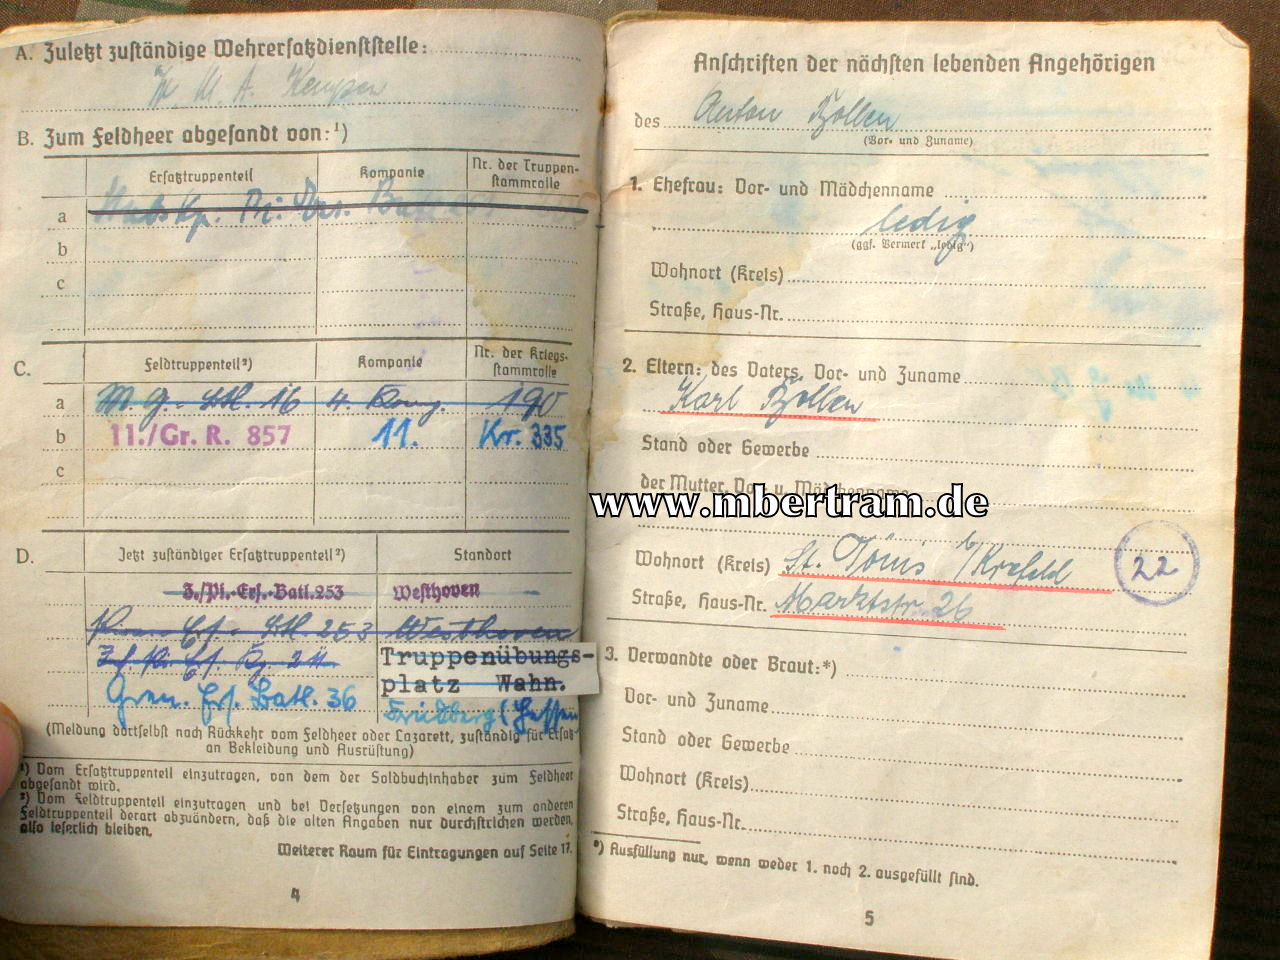 A. Zuletzt zuständige Wehrersatzdienststelle:
W. M. A. Kempen
B. Zum Feldheer abgesandt von:¹)
Ersatztruppenteil
Kompanie
Nr. der Truppen-
stammrolle
a
b
c
C.
Feldtruppenteil²)
Kompanie
Nr. der Kriegs-
stammrolle
a M. G. 16 4. Komp. 190
b 11./Gr. R. 857 11. Kr. 335
c
D.
Jetzt zuständiger Ersatztruppenteil²)
Standort
3./Pi.-Ers.-Batl. 253 Westhoven
Ers. 253 Westhoven
Truppenübungs-
platz Wahn.
Gren. Ers. Batl. 36 Friedberg (Hessen
(Meldung dortselbst nach Rückkehr vom Feldheer oder Lazarett, zuständig für Ersatz
an Bekleidung und Ausrüstung)
¹) Vom Ersatztruppenteil einzutragen, von dem der Soldbuchinhaber zum Feldheer
abgesandt wird.
²) Vom Feldtruppenteil einzutragen und bei Versetzungen von einem zum anderen
Feldtruppenteil derart abzuändern, daß die alten Angaben nur durchstrichen werden,
also leserlich bleiben.
Weiterer Raum für Eintragungen auf Seite 17.
4
Anschriften der nächsten lebenden Angehörigen
des Anton Bollen
(Vor- und Zuname)
1. Ehefrau: Vor- und Mädchenname
ledig
(ggf. Vermerk „ledig“)
Wohnort (Kreis)
Straße, Haus-Nr.
2. Eltern: des Vaters, Vor- und Zuname
Karl Bollen
Stand oder Gewerbe
der Mutter, Vor- u. Mädchenname
www.mbertram.de
Wohnort (Kreis) St. Tönis b/Krefeld
22
Straße, Haus-Nr. Marktstr. 26
3. Verwandte oder Braut:*)
Vor- und Zuname
Stand oder Gewerbe
Wohnort (Kreis)
Straße, Haus-Nr.
*) Ausfüllung nur, wenn weder 1. noch 2. ausgefüllt sind.
5